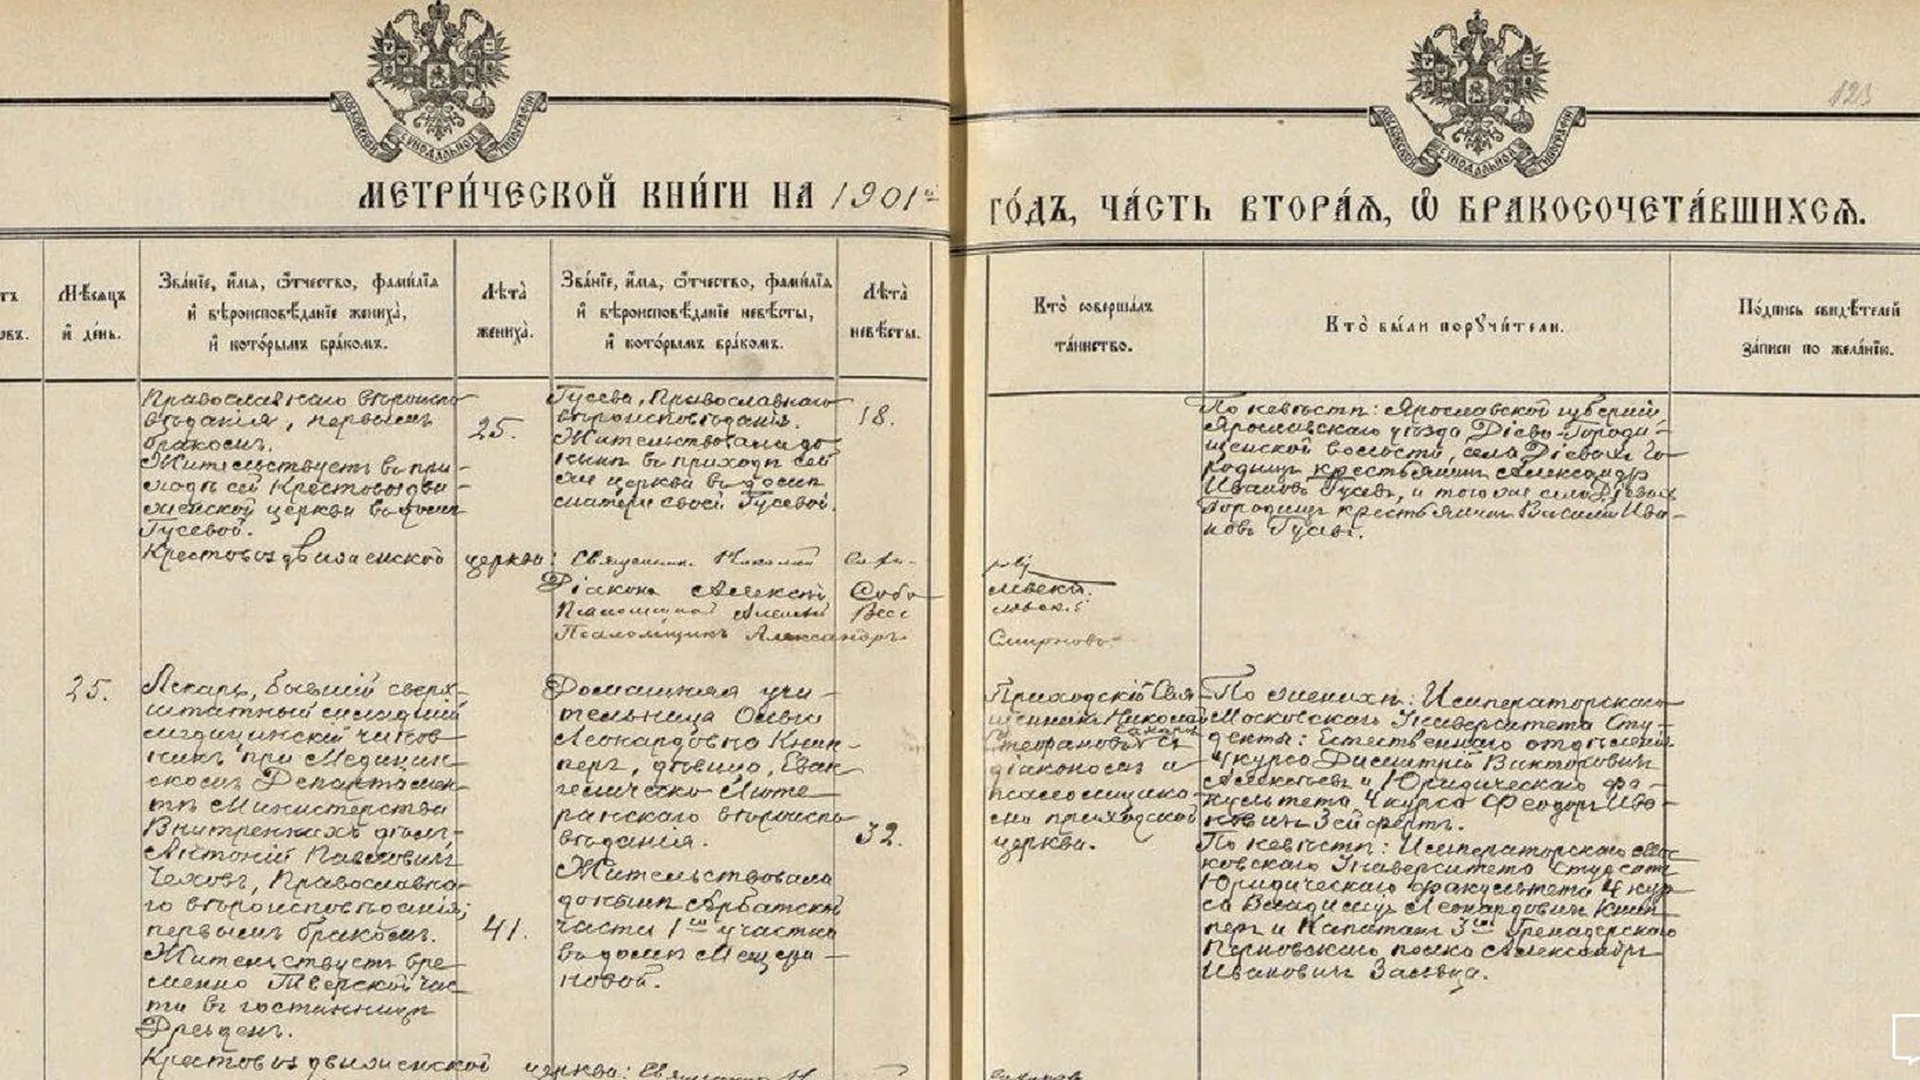 МОСКОВСКОЙ СѴНОДАЛЬНОЙ ТИПОГРАФІИ
МОСКОВСКОЙ СѴНОДАЛЬНОЙ ТИПОГРАФІИ
123
МЕТРИ́ЧЕСКОЙ КНИ́ГИ НА 1901й
ГО́ДЪ, ЧА́СТЬ ВТОРА́Ѧ, Ѿ БРАКОСОЧЕТА́ВШИХСѦ.
Мѣ́сяцъ
и҆ де́нь.
Зва́нїе, и҆́мѧ, ѻ҆́тчество, фами́лїѧ
и҆ вѣроисповѣ́данїе жениха̀,
и҆ кото́рымъ бра́комъ.
Лѣта̀
жениха̀.
Зва́нїе, и҆́мѧ, ѻ҆́тчество, фами́лїѧ
и҆ вѣроисповѣ́данїе невѣ́сты,
и҆ кото́рымъ бра́комъ.
Лѣта̀
невѣ́сты.
Кто̀ соверша́лъ
та́инство.
Кто̀ бы́ли порꙋчи́тели.
По́дпись свидѣ́телей
за́писи по жела́нїю.
Православнаго вѣроиспо-
вѣданія, первымъ
бракомъ.
Жительствуетъ въ при-
ходѣ сей Крестовоздви-
женской церкви въ домѣ
Гусевой.
25.
Гусева, Православнаго
вѣроисповѣданія.
Жительствовала до-
нынѣ въ приходѣ сей
же церкви въ домѣ
матери своей Гусевой.
18.
По невѣстѣ: Ярославской губерніи
Ярославскаго уѣзда Діево-Городи-
щенской волости, села Діевыхъ Го-
родищъ крестьянинъ Александръ
Ивановъ Гусевъ, и того же села Діевыхъ
Городищъ крестьянинъ Василій Ива-
новъ Гусевъ.
Крестовоздвиженской церкви: Священникъ Николай
Діаконъ Алексѣй
Псаломщикъ
Псаломщикъ Александръ Смирновъ
25.
Лекарь, бывшій сверх-
штатный младшій
медицинскій чинов-
никъ при Медицин-
скомъ Департамен-
тѣ Министерства
Внутреннихъ дѣлъ,
Антоній Павловичъ
Чеховъ, Православна-
го вѣроисповѣданія;
первымъ бракомъ.
Жительствуетъ вре-
менно Тверской час-
ти въ гостинницѣ
Дрезденъ.
41.
Домашняя учи-
тельница Ольга
Леонардовна Книп-
перъ, дѣвица, Еван-
гелическо Люте-
ранскаго вѣроиспо-
вѣданія.
Жительствовала
донынѣ Арбатской
части 1го участка
въ домѣ Мещери-
новой.
32.
Приходскій Свя-
щенникъ Николай
Стефановъ съ
діакономъ и
псаломщико-
ми приходской
церкви.
По женихѣ: Императорскаго
Московскаго Университета Сту-
денты: Естественнаго отдѣленія
4 курса Дмитрій Викторовичъ
Алексѣевъ и Юридическаго фа-
культета 4 курса Феодоръ Ива-
новичъ Зейфертъ.
По невѣстѣ: Императорскаго Мос-
ковскаго Университета Студентъ
Юридическаго факультета 4 кур-
са Владиміръ Леонардовичъ Книп-
перъ и Капитанъ 3го Гренадерскаго
Перновскаго полка Александръ
Ивановичъ Зальца.
Крестовоздвиженской церкви: Священникъ Н